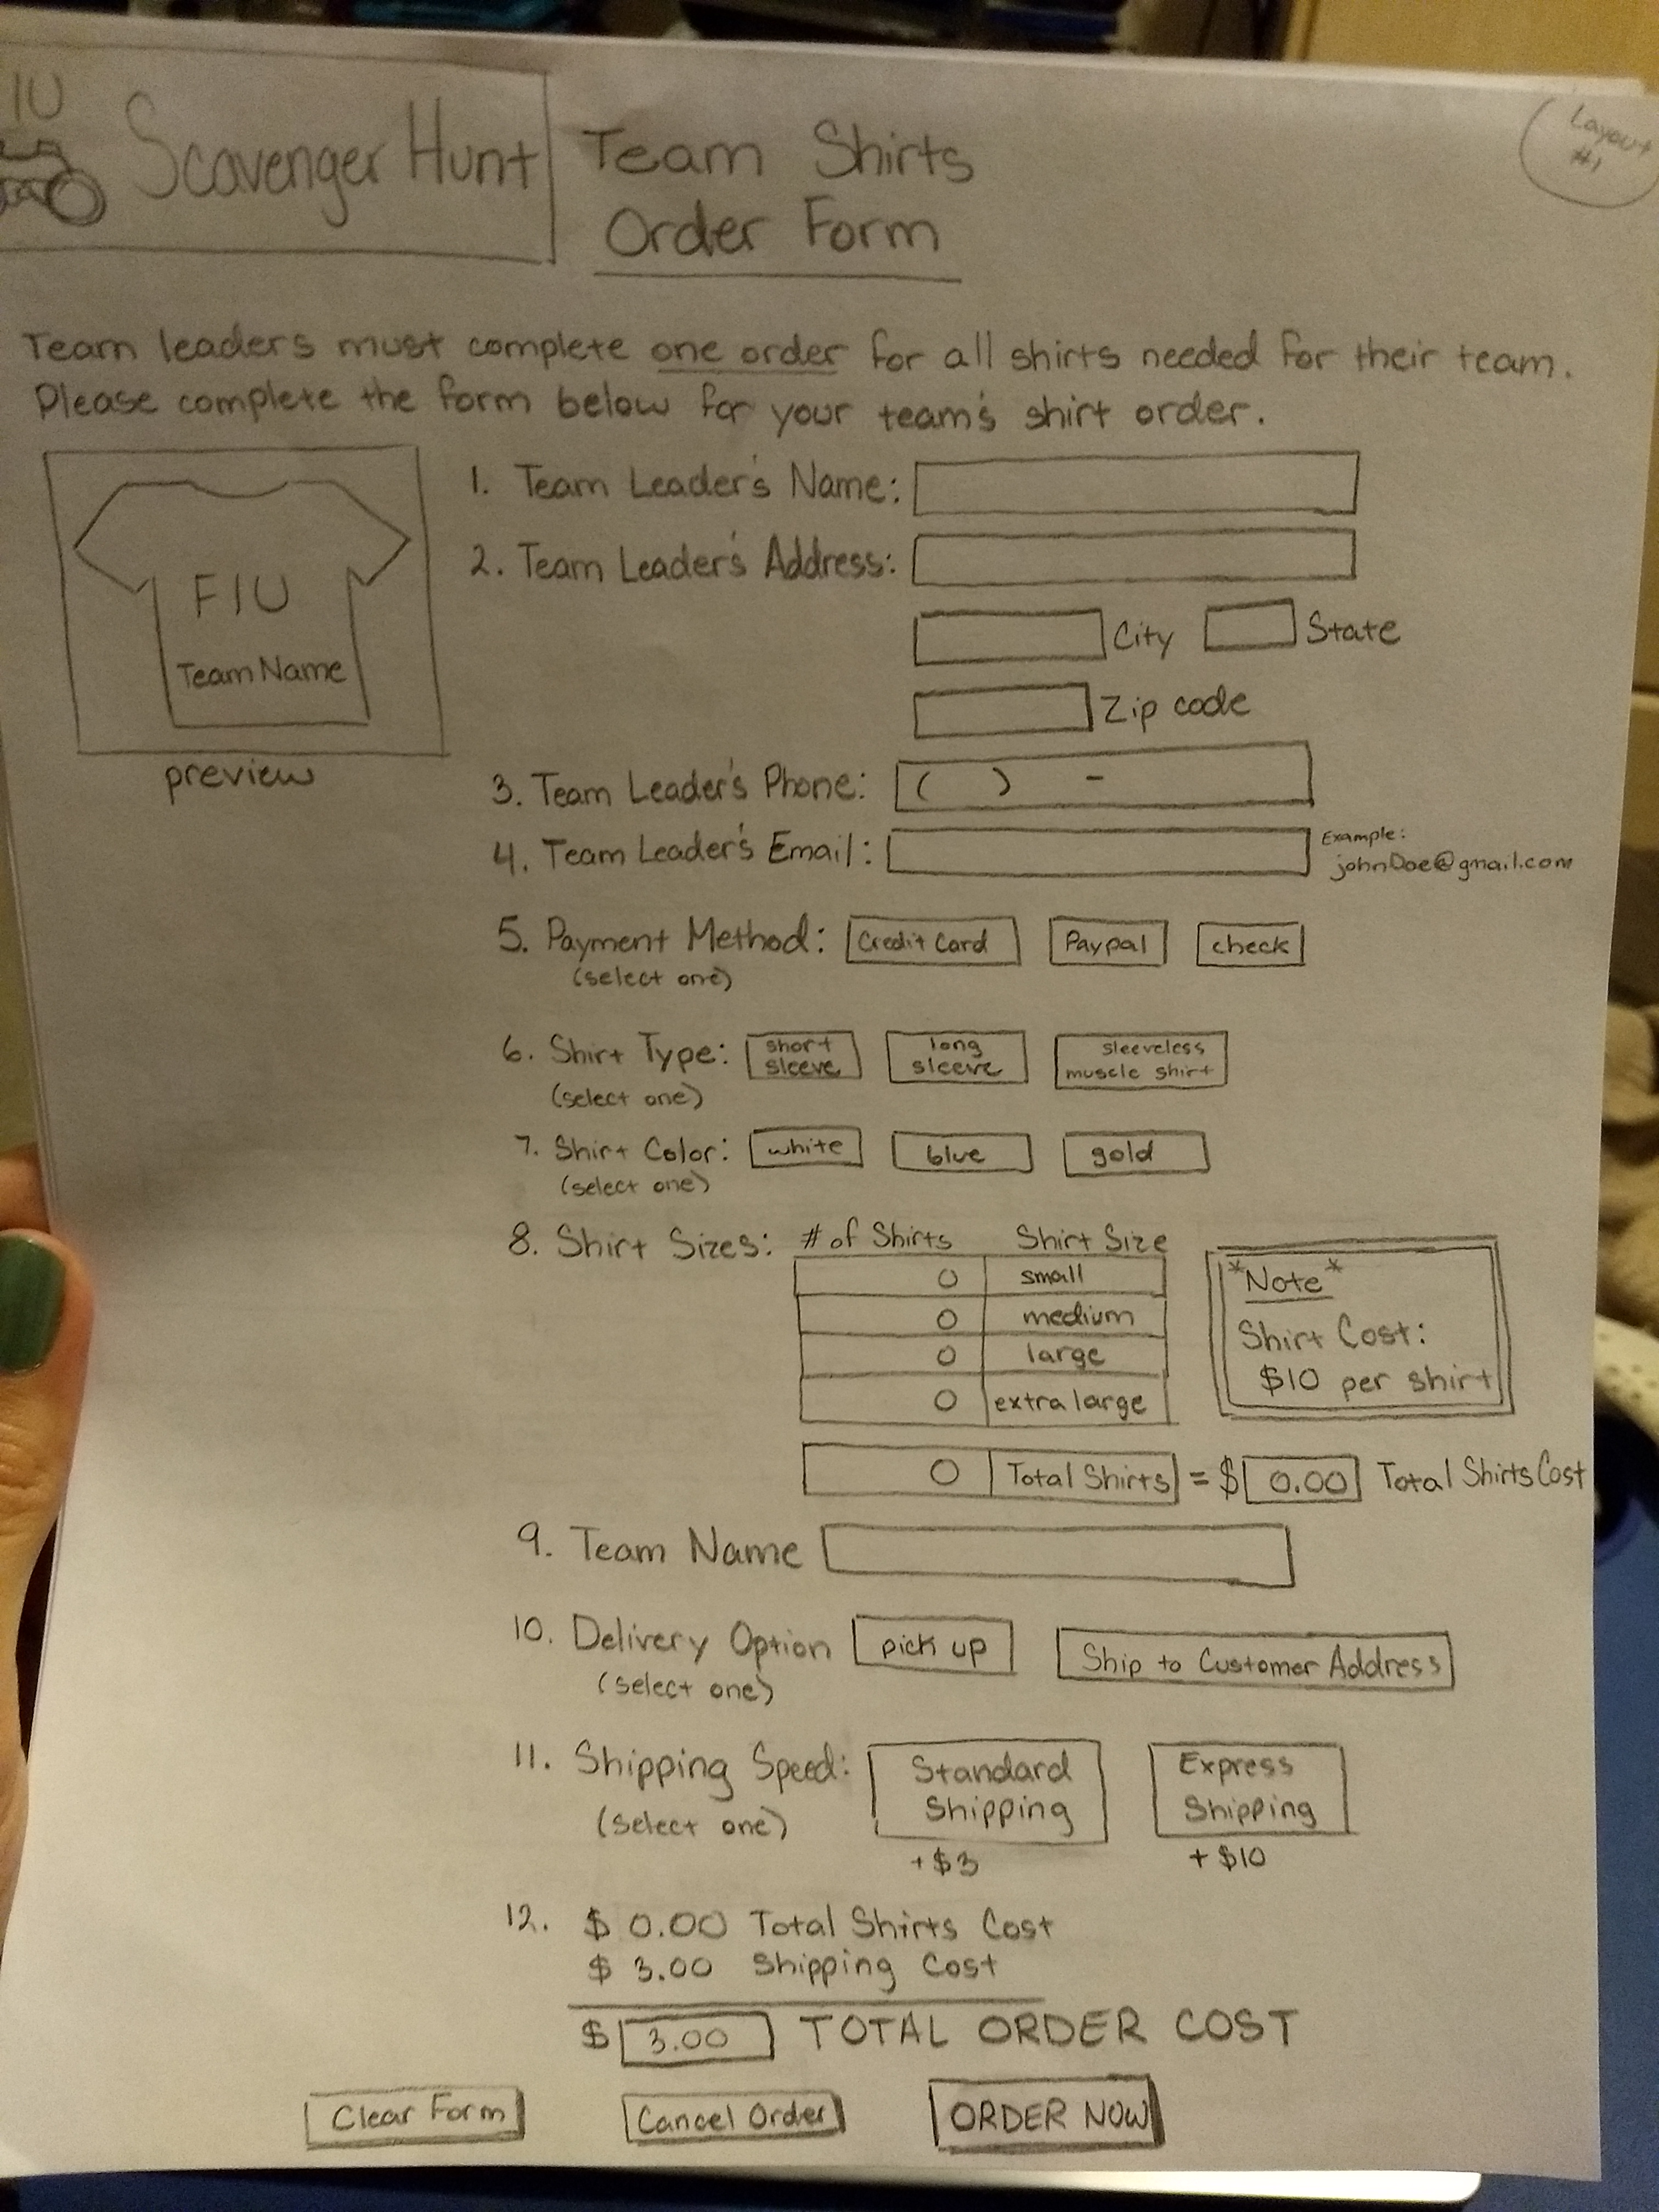 IU
Scavenger Hunt
Team Shirts
Order Form
Layout
#1
Team leaders must complete one order for all shirts needed for their team.
Please complete the form below for your team's shirt order.
FIU
Team Name
preview
1. Team Leader's Name:
2. Team Leader's Address:
City State
Zip code
3. Team Leader's Phone: ( ) -
4. Team Leader's Email: Example:
johnDoe@gmail.com
5. Payment Method: Credit Card Paypal check
(select one)
6. Shirt Type: short sleeve long sleeve sleeveless muscle shirt
(select one)
7. Shirt Color: white blue gold
(select one)
8. Shirt Sizes: # of Shirts Shirt Size
0 small
0 medium
0 large
0 extra large
*Note*
Shirt Cost:
$10 per shirt
0 Total Shirts = $ 0.00 Total Shirts Cost
9. Team Name
10. Delivery Option pick up Ship to Customer Address
(select one)
11. Shipping Speed: Standard Shipping Express Shipping
(select one)
+$3 +$10
12. $ 0.00 Total Shirts Cost
$ 3.00 Shipping Cost
$ 3.00 TOTAL ORDER COST
Clear Form Cancel Order ORDER NOW